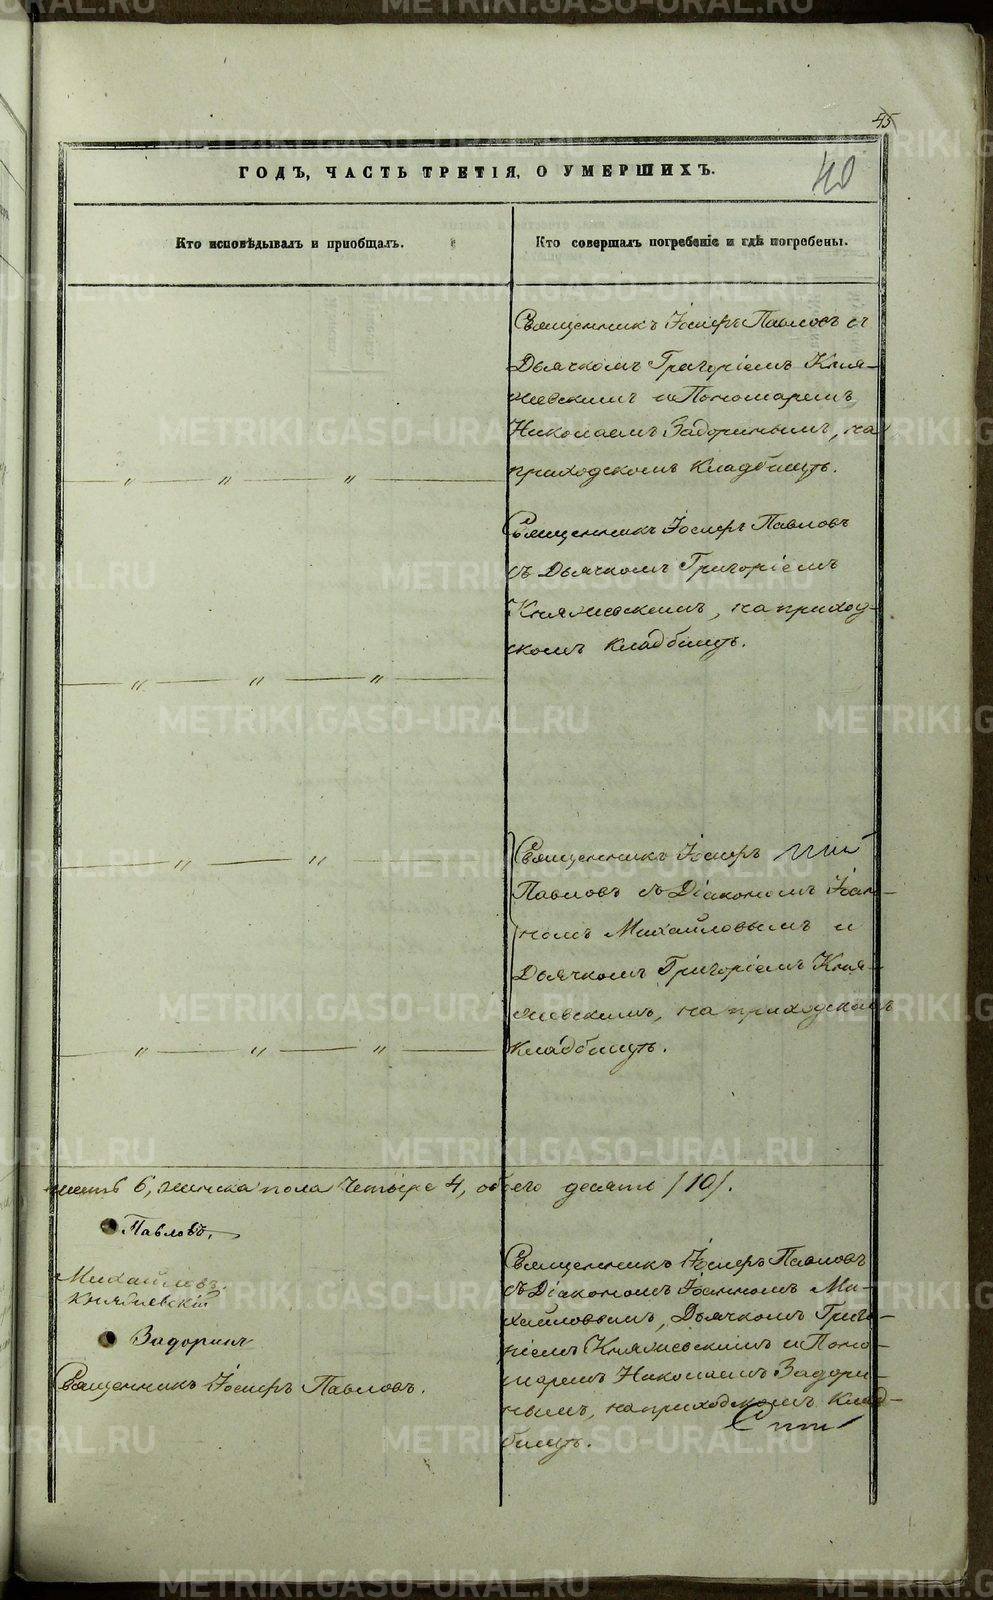 45
40
ГОДЪ, ЧАСТЬ ТРЕТІЯ, О УМЕРШИХЪ.
Кто исповѣдывалъ и пріобщалъ.
Кто совершалъ погребеніе и гдѣ погребены.
Священникъ Іосифъ Павловъ съ
Дьячкомъ Григоріемъ Кня-
жевскимъ и Пономаремъ
Николаемъ Задоринымъ, на
приходскомъ кладбищѣ.
Священникъ Іосифъ Павловъ
съ Дьячкомъ Григоріемъ
Княжевскимъ, на приход-
скомъ кладбищѣ.
Священникъ Іосифъ
Павловъ съ Діакономъ Іоан-
номъ Михайловымъ и
Дьячкомъ Григоріемъ Кня-
жевскимъ, на приходскомъ
кладбищѣ.
6, женска пола четыре 4, обоего десять /10/.
Павловъ,
Михайловъ.
Княжевскій
Задоринъ
Священникъ Іосифъ Павловъ.
Священникъ Іосифъ Павловъ
съ Діакономъ Іоанномъ Ми-
хайловымъ, Дьячкомъ Григо-
ріемъ Княжевскимъ и Поно-
маремъ Николаемъ Задори-
нымъ, на приходскомъ клад-
бищѣ.
METRIKI.GASO-URAL.RU